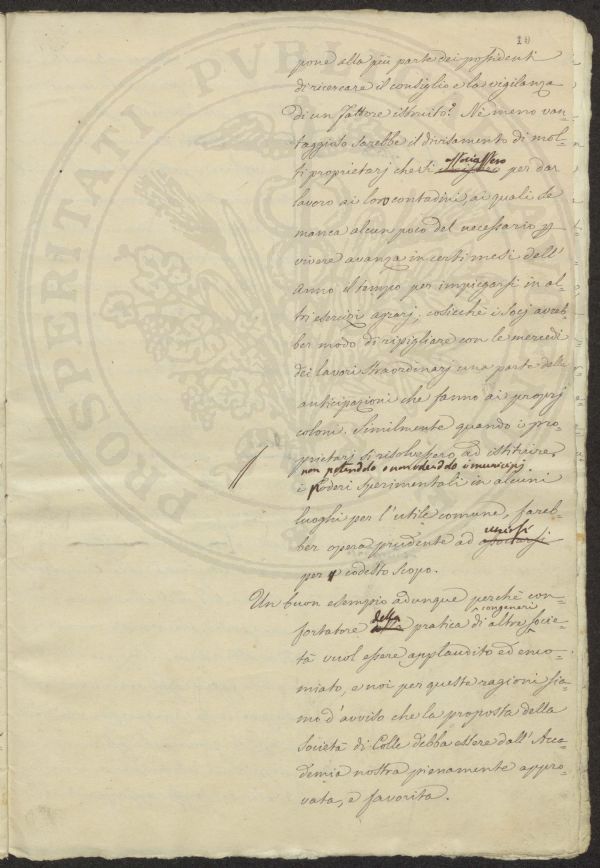 10
pone alla più parte dei possidenti
di ricercare il consiglio e la vigilanza
di un Fattore istruito? Né meno van-
taggioso sarebbe il divisamento di mol-
ti proprietarj che si associassero per dar
lavoro ai loro contadini, ai quali se
manca alcun poco del necessario p
vivere avanza in certi mesi dell'
Anno il tempo per impiegarsi in al-
tri esercizi agrarj, cosicchè i Socj avreb-
ber modo di ripigliare con le mercedi
dei lavori straordinarj una parte delle
anticipazioni che fanno ai proprj
coloni. Similmente quando i pro-
prietarj si risolvessero ad istituire,
non potendolo o non volendolo i municipj,
i poderi sperimentali in alcuni
luoghi per l'utile comune, fareb-
ber opera prudente ad unirsi associarsi
per codesto scopo.
Un buon esempio adunque perchè con-
fortatore della pratica di altre congeneri Socie-
tà vuol essere applaudito ed enco-
miato, e noi per queste ragioni sia-
mo d'avviso che la proposta della
Società di Colle debba essere dall' Acca-
demia nostra pienamente appro-
vata, e favorita.
PROSPERITATI PVBLICAE